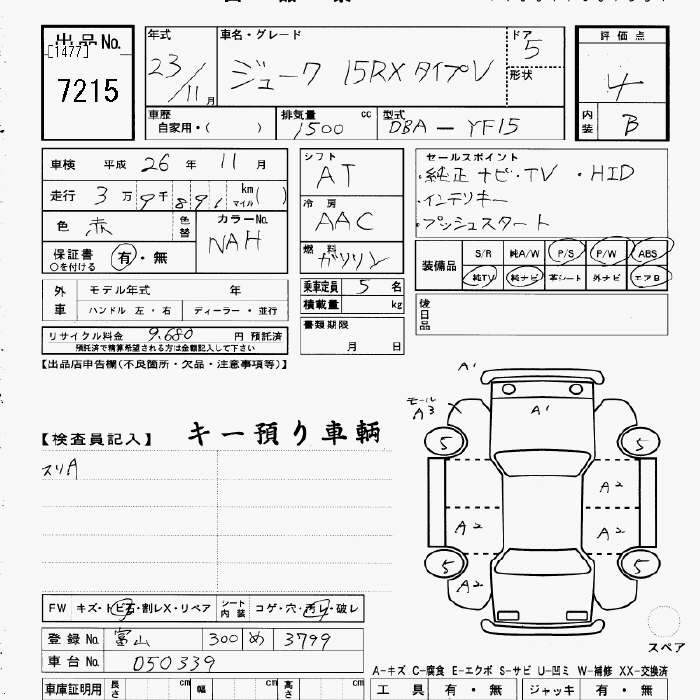 出品No.
[1477]
7215
年式
23/11月
車名・グレード
ジューク 15RX タイプV
ドア
5
形状
評価点
4
内装
B
車歴
自家用・( )
排気量 cc
1500
型式
DBA - YF15
車検 平成 26 年 11 月
走行 3万9千891 km マイル( )
色 赤 色替
カラーNo.
NAH
保証書 有・無
○を付ける
外車 モデル年式 年
ハンドル 左・右 ディーラー・並行
リサイクル料金 9,680 円 預託済
預託済で精算希望される方は金額記入して下さい
シフト
AT
冷房
AAC
燃料
ガソリン
乗車定員 5 名
積載量 kg
書類期限
月 日
セールスポイント
・純正ナビ・TV ・HID
・インテリキー
・プッシュスタート
装備品
S/R 純A/W P/S P/W ABS
純TV 純ナビ 革シート 外ナビ エアB
後日品
【出品店申告欄(不良箇所・欠品・注意事項等)】
【検査員記入】 キー預り車輌
スリA
A1
モール
A3
A1
5 5
A2
A2 A2
5 5
A2
スペア
FW キズ・トビ石・割レX・リペア シート内装 コゲ・穴・汚レ・破レ
登録No. 富山 300 め 3799
車台No. 050339
車庫証明用 長さ cm 幅 cm 高さ cm
A-キズ C-腐食 E-エクボ S-サビ U-凹ミ W-補修 XX-交換済
工具 有・無 ジャッキ 有・無